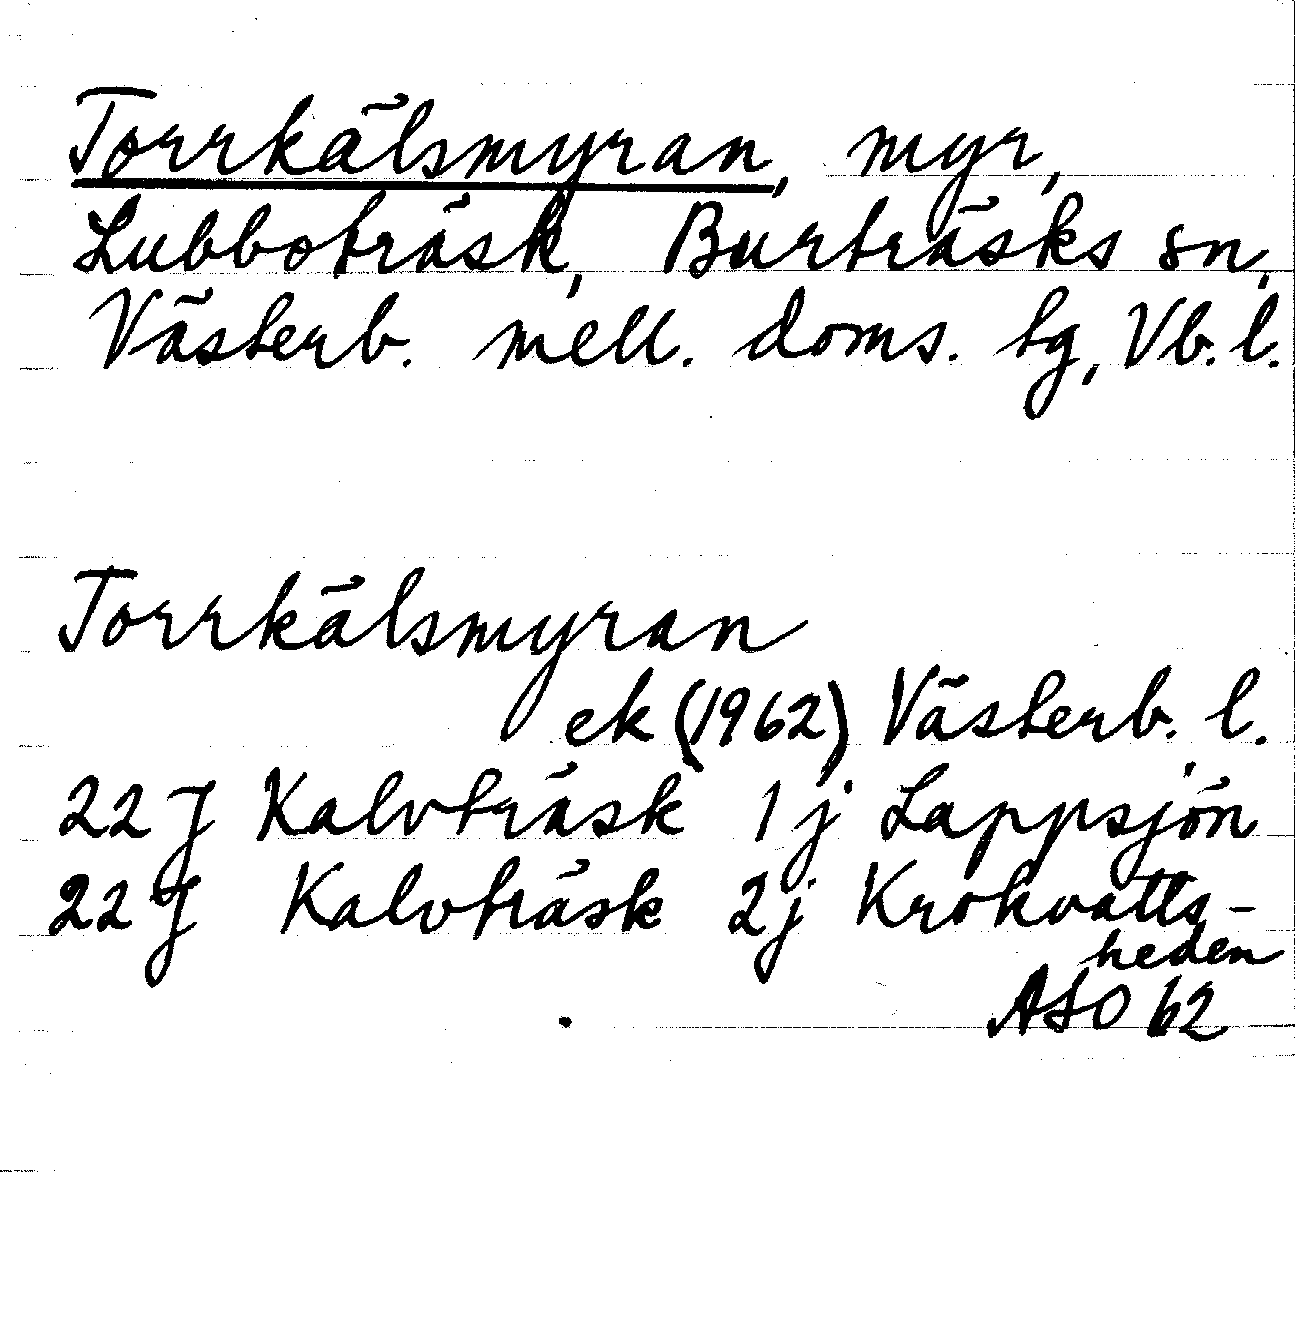 Torrkälsmyran, myr,
Lubboträsk, Burträsks sn,
Västerb. mell. doms. tg, Vb. l.
Torrkälsmyran
ek (1962) Västerb. l.
22 J Kalvträsk 1 j Lappsjön
22 J Kalvträsk 2j Krokvatts-
heden
ASO 62